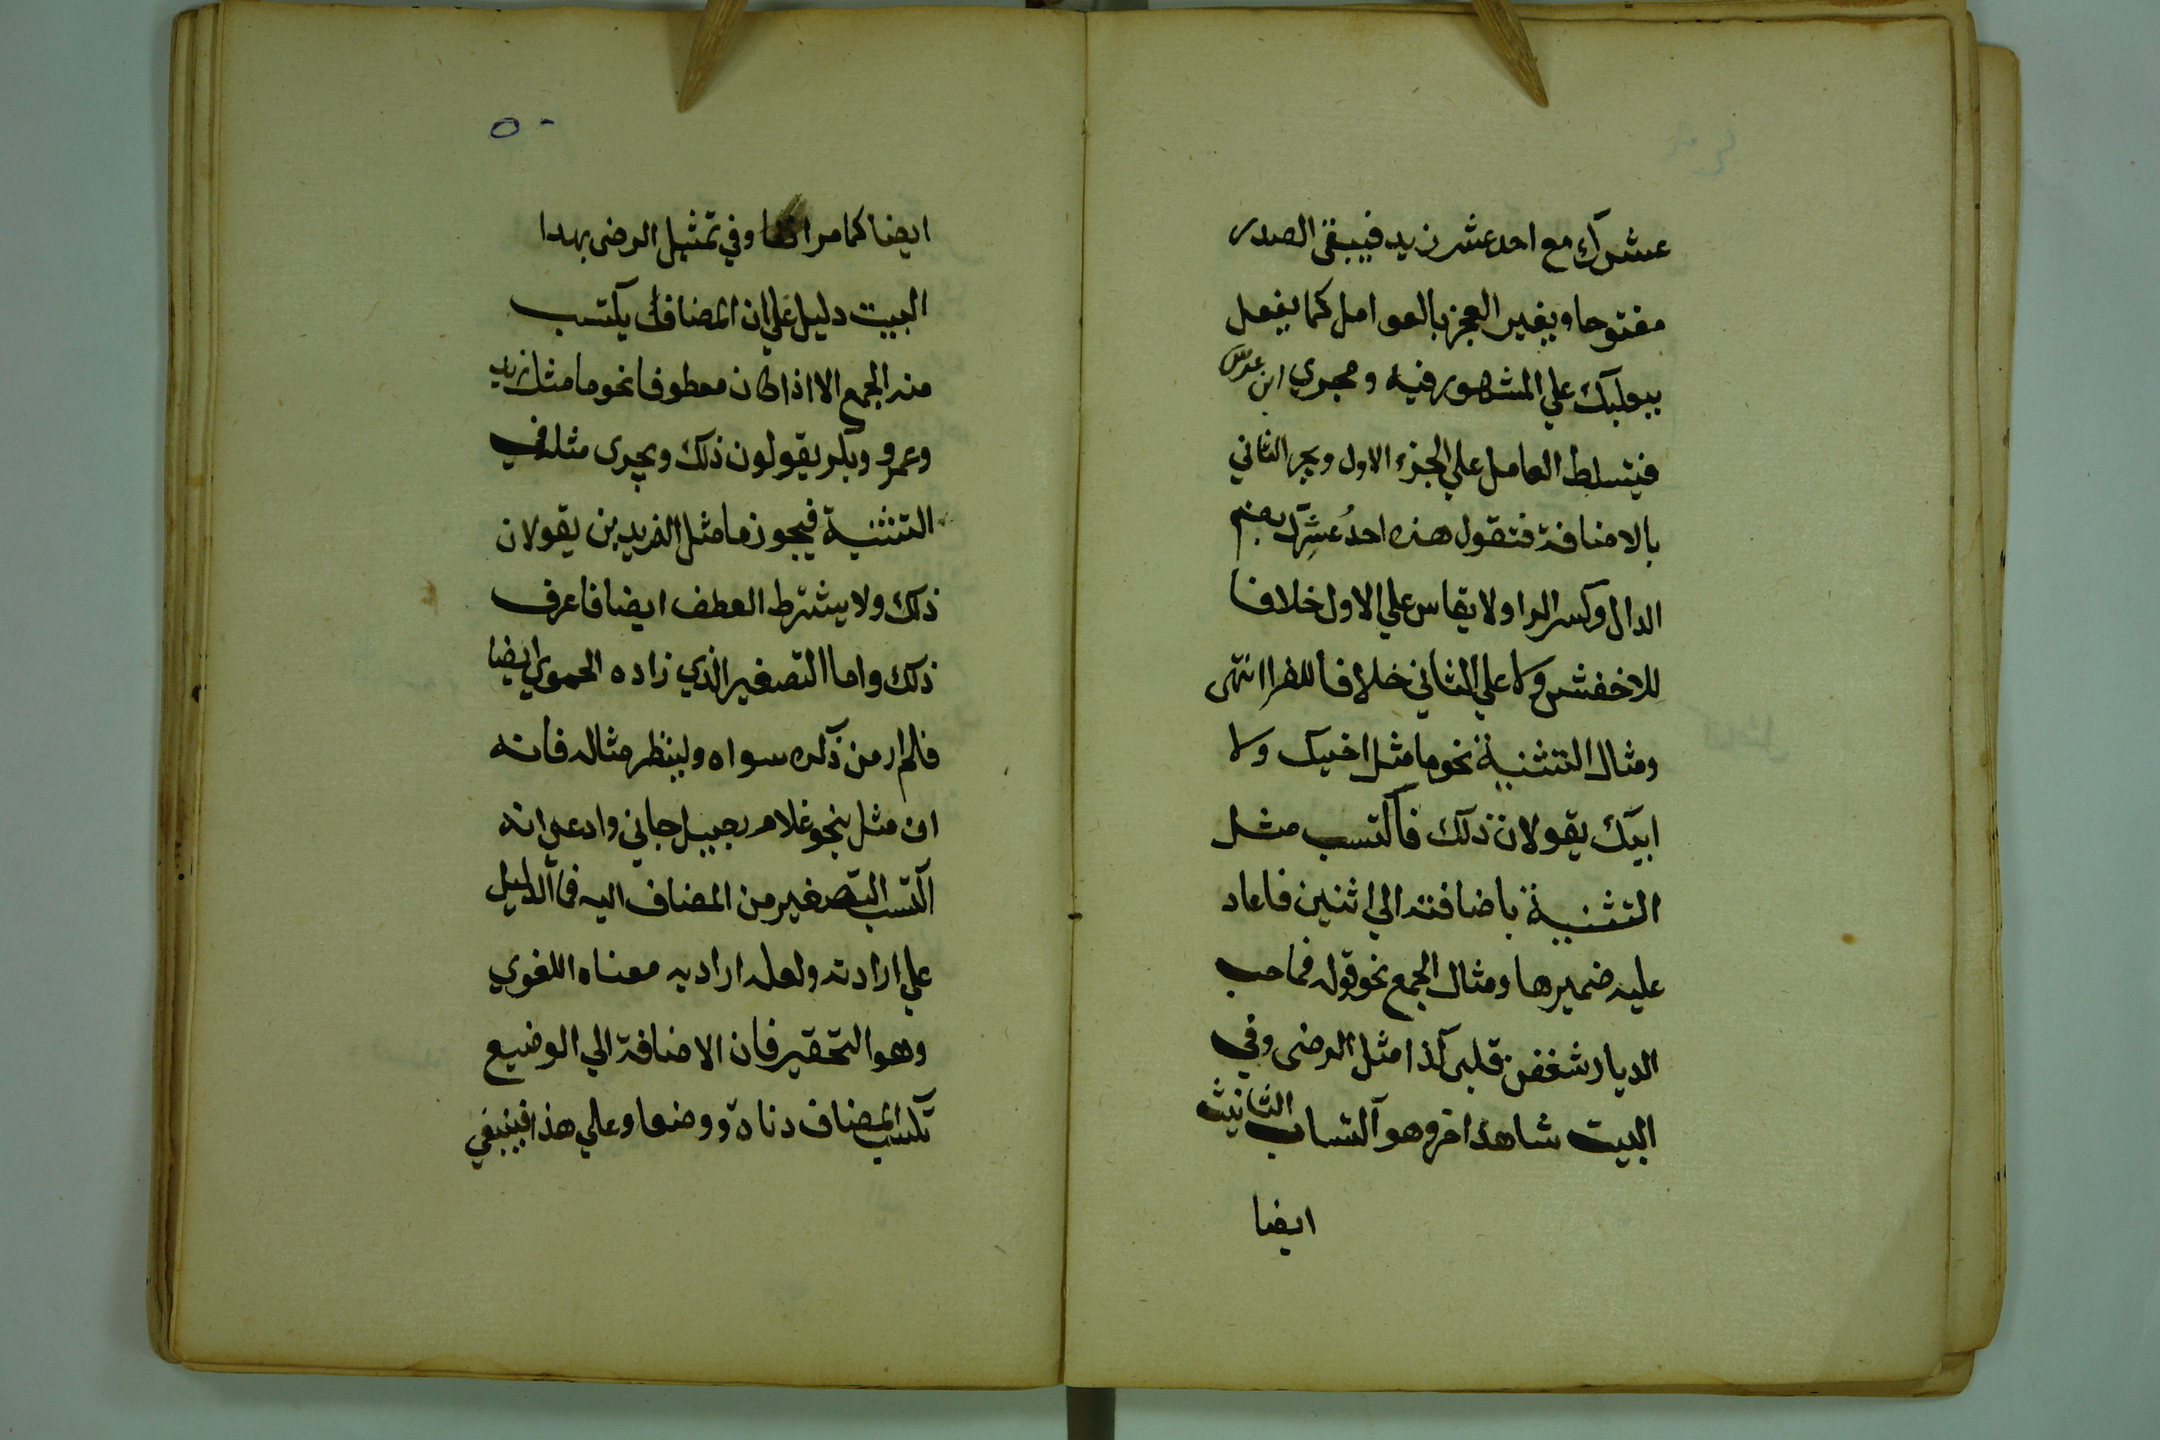 عشرك مع احد عشر زيد فيبقى الصدر
مفتوحا ويغير العجز بالعوامل كما يفعل
ببعلبك علي المشهور فيه ومجري ابن عرس
فيتسلط العامل علي الجزء الاول ويجر الثاني
بالاضافة فتقول هذه احدُ عشرِك بضم
الدال وكسر الرا ولا يقاس علي الاول خلافا
للاخفش ولا علي الثاني خلافا للفرا انتهى
ومثال التثنية نحو ما مثل اخيك ولا
ابيك يقولان ذلك فاكتسب مثل
التثنية باضافته الي اثنين فاعاد
عليه ضميرها ومثال الجمع نحو قوله فما حب
الديار شغفن قلبى كذا مثل الرضى وفي
البيت شاهد اخر وهو اكتساب التانيث
ايضا
٥٠
ايضا كما مر انفا وفي تمثيل الرضى بهذا
البيت دليل علي ان المضاف لا يكتسب
منه الجمع الا اذا كان معطوفا نحو ما مثل زيد
وعمرو وبكر يقولون ذلك ويجرى مثله في
التثنية فيجوز ما مثل الزيدين يقولان
ذلك ولا يشترط العطف ايضا فاعرف
ذلك واما التصغير الذي زاده الحموي ايضا
فلم ار من ذكره سواه ولينظر مثاله فانه
ان مثل بنحو غلام رجيل جاني وادعي انه
اكتسب التصغير من المضاف اليه فما الدليل
علي ارادته ولعله اراد به معناه اللغوي
وهو التحقير فان الاضافة الي الوضيع
تكسب المضاف دناة ووضعا وعلي هذا فينبغي